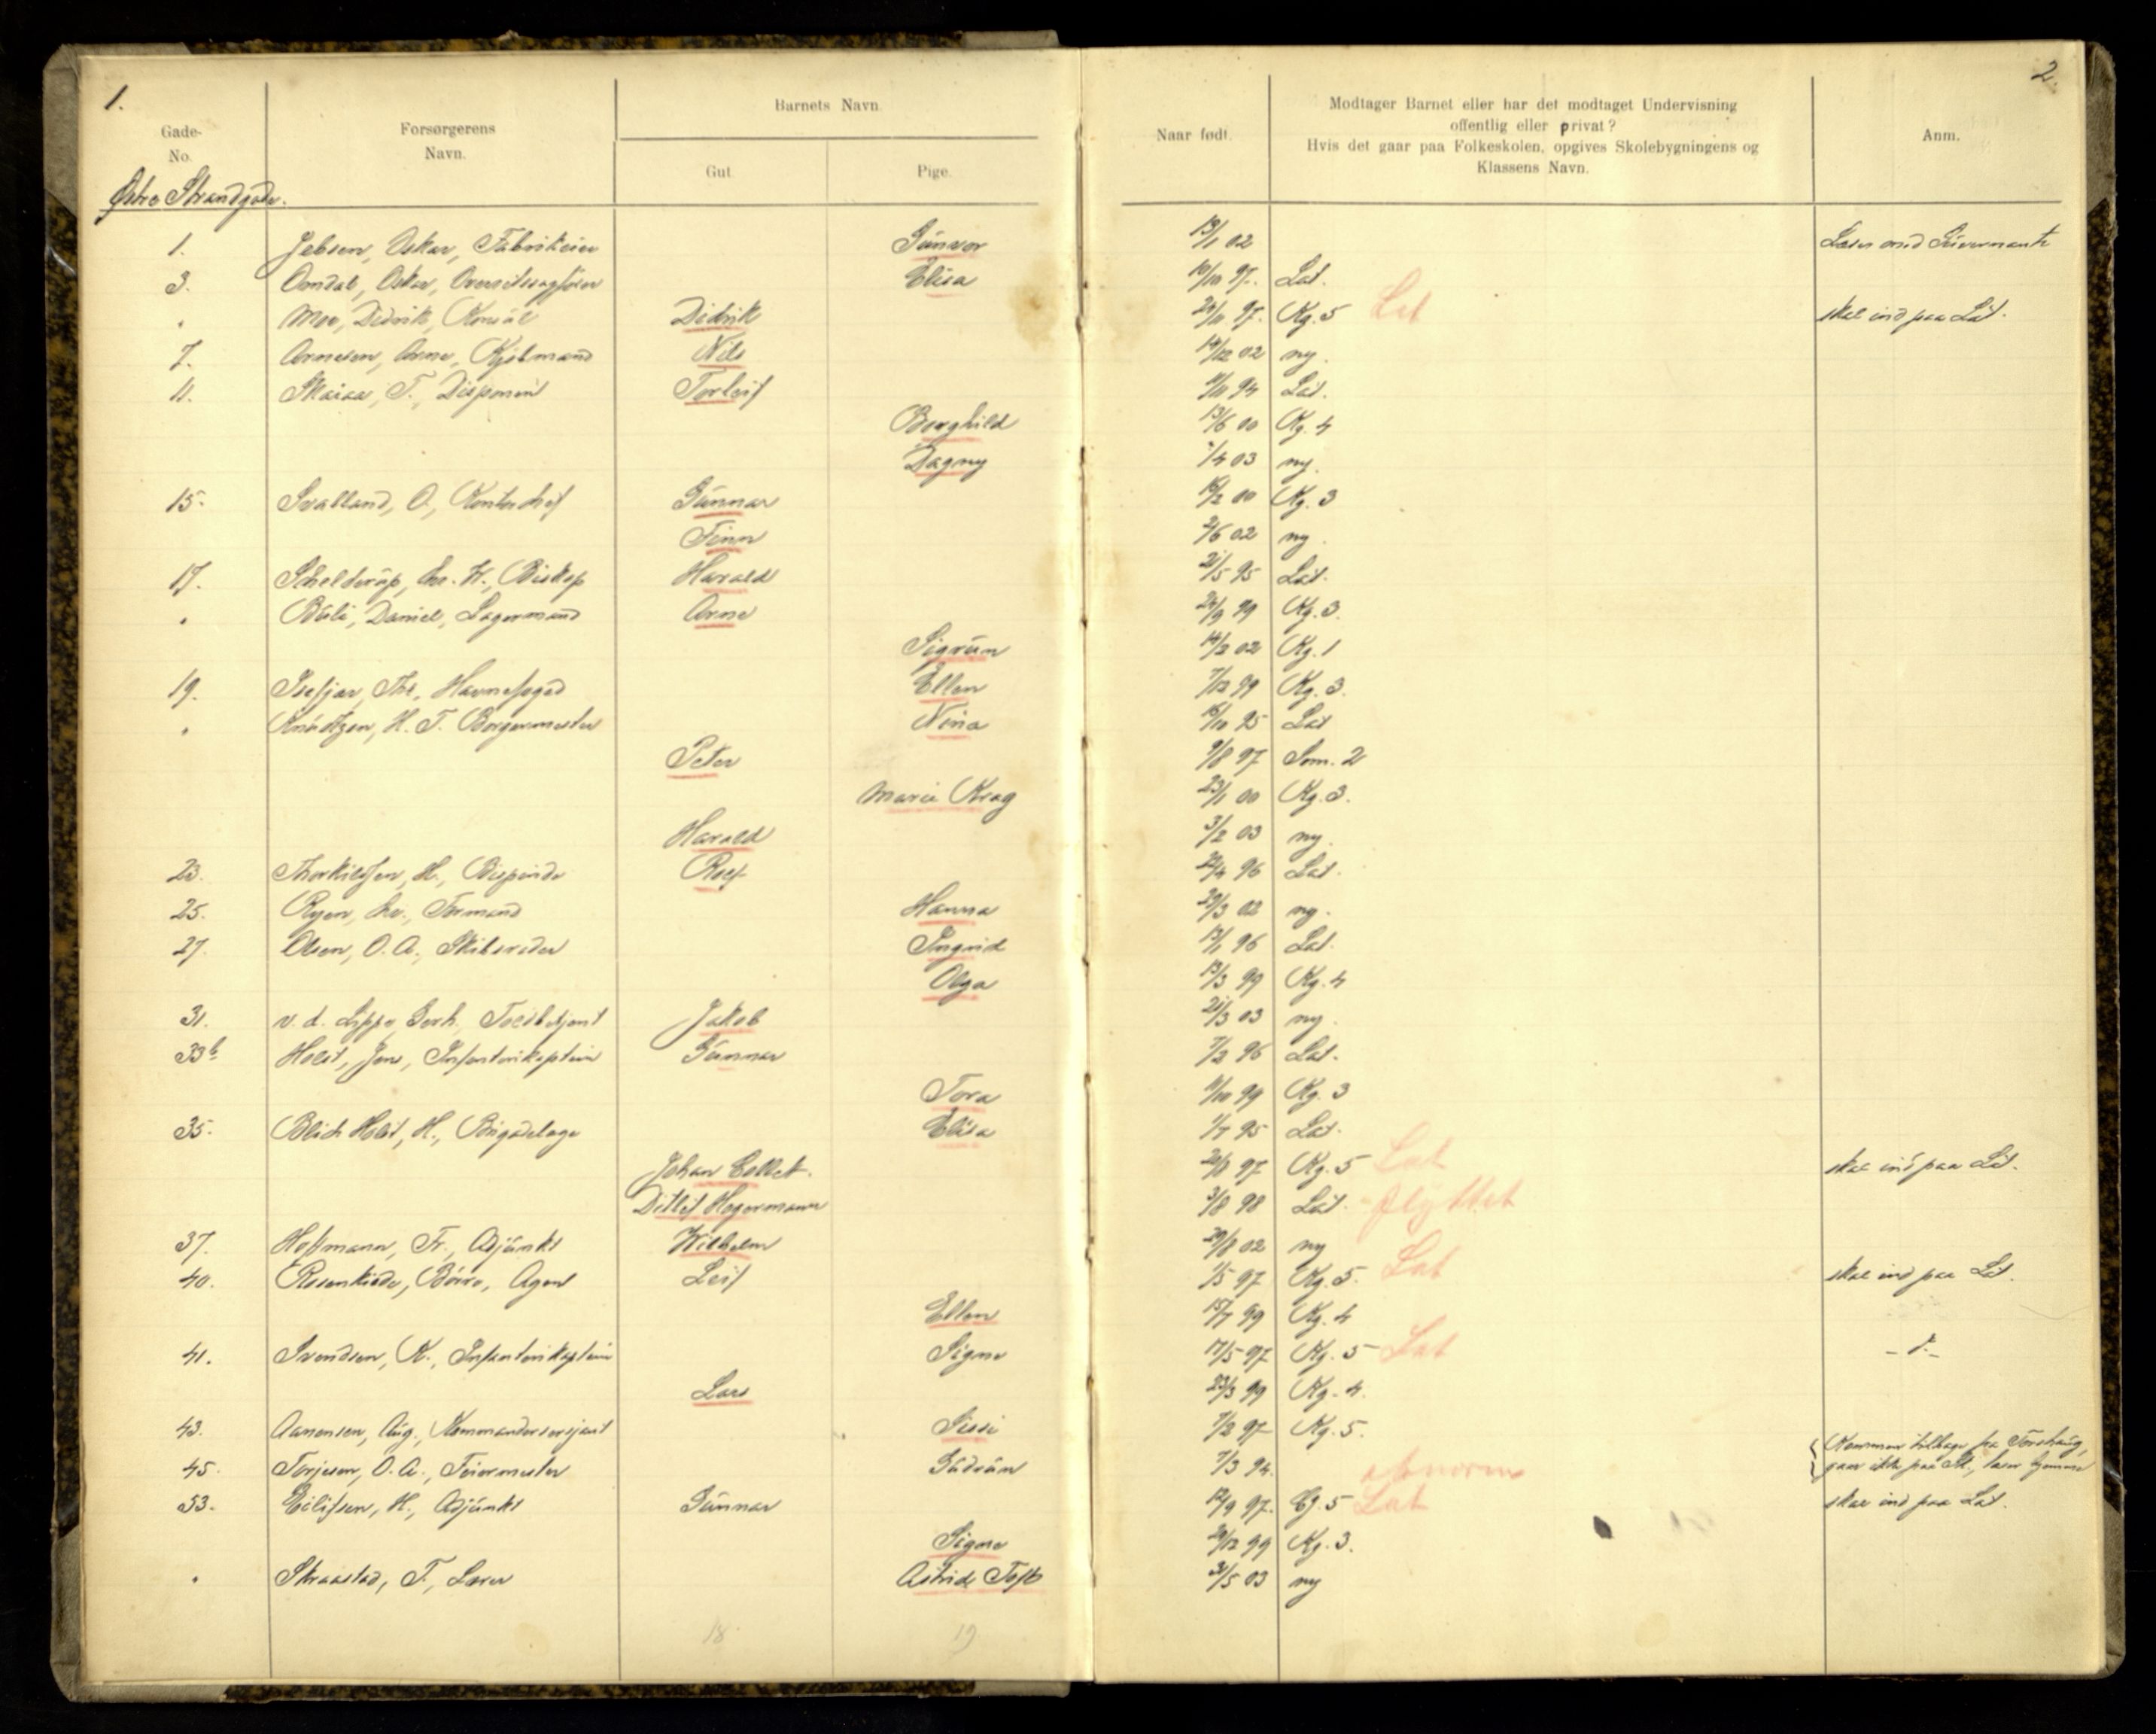 1.
2.
Gade-
No.
Forsørgerens
Navn.
Barnets Navn
Gut
Pige.
Naar født.
Modtager Barnet eller har det modtaget Undervisning
offentlig eller privat?
Hvis det gaar paa Folkeskolen, opgives Skolebygningens og
Klassens Navn.
Anm.
Østre Strandgade.
1. Jebsen, Oskar, Fabrikeier Gunvor 13/1 02 Læser med Guvernante
3. Omdal, Oskar, Overretssagfører Elisa 10/10 97. Lat.
" Moe, Didrik, Konsul Didrik 24/11 97. Kg. 5 Lat skal ind paa Lat.
7. Arnesen, Arne, Kjøbmand Nils 14/12 02 ny.
11. Skaiaa, T., Disponent Torleif 11/11 94 Lat.
Borghild 13/6 00 Kg. 4
Dagny /4 03 ny.
15. Svalland, O, Kontorchef Gunnar 16/2 00 Kg. 3
Finn 2/6 02 ny.
17. Schelderup, Chr. W., Biskop Harald 21/5 95 Lat.
" Daniel, Lagermand Arne 24/9 99 Kg. 3.
Sigrun 14/2 02 Kg. 1
19. Isefjær, Thr., Havnefoged Ellen 7/12 99 Kg. 3.
" Knudtzon, H. T. Borgermester Nina 16/10 95 Lat
Peter 9/8 97 Som. 2
Marie Krag 23/1 00 Kg. 3.
Harald 3/2 03 ny.
23. Thorkildsen, H., Rolf 22/4 96 Lat.
25. Ryen, Chr., Formand Hanna 29/3 02 ny.
27. Olsen, O. A., Skibsreder Ingrid 13/1 96 Lat.
Olga 13/3 99 Kg. 4
31. v. d. Lippe, Gerh. Toldbetjent Jakob 21/3 03 ny.
33b Holst, Jens, Infanterikaptein Gunnar 7/2 96 Lat.
Tora 11/10 99 Kg. 3
35. Blich Holst, H., Brigadelæge Elisa 1/7 95 Lat.
Johan Collett. 20/8 97 Kg. 5 Lat skal ind paa Lat.
Ditlef Hegermann 3/8 98 Lat. - flyttet
37. Hoffmann, Fr., Adjunkt Wilhelm 29/8 02 ny
40. Rosenkilde, Børre, Agent Leif 1/5 97 Kg. 5. Lat skal ind paa Lat.
Ellen 15/7 99 Kg. 4
41. Svendsen, K., Infanterikaptein Signe 17/5 97 Kg. 5 Lat - d. -
Lars 23/3 99 Kg. 4.
43. Aanensen, Aug., Kommandersersjant Sissi 7/2 97 Kg. 5.
45. Torjesen, O. A., Feiermester Gudrun 7/3 94. abnorm Kommer tilbage fra Torshaug,
gaar ikke paa Sk., læser hjemme
53. Eilifsen, H., Adjunkt Gunnar 12/9 97. Lat skal ind paa Lat.
Signe 29/12 99 Kg. 3.
" Straastad, T., Lærer Astrid Toft 31/5 03 ny
18 19